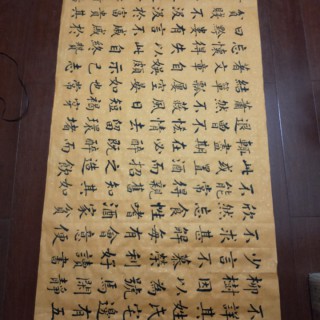 不詳其姓氏宅邊有五
柳樹因以為號焉閑靜
少言不慕榮利好讀書
不求甚解每有會意便
欣然忘食性嗜酒家貧
不能常得親舊知其如
此或置酒而招之造飲
輒盡期在必醉既醉而
退曾不恡情去留環堵
蕭然不蔽風日短褐穿
結簞瓢屢空晏如也常
著文章自娛頗示己志
忘懷得失以此自終贊
曰黔婁有言不戚戚於
貧賤不汲汲於富貴其